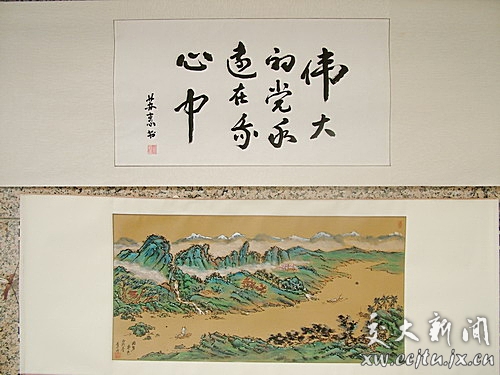 伟大
的党永
遠在我
心中
交大新闻
xw.ecjtu.jx.cn